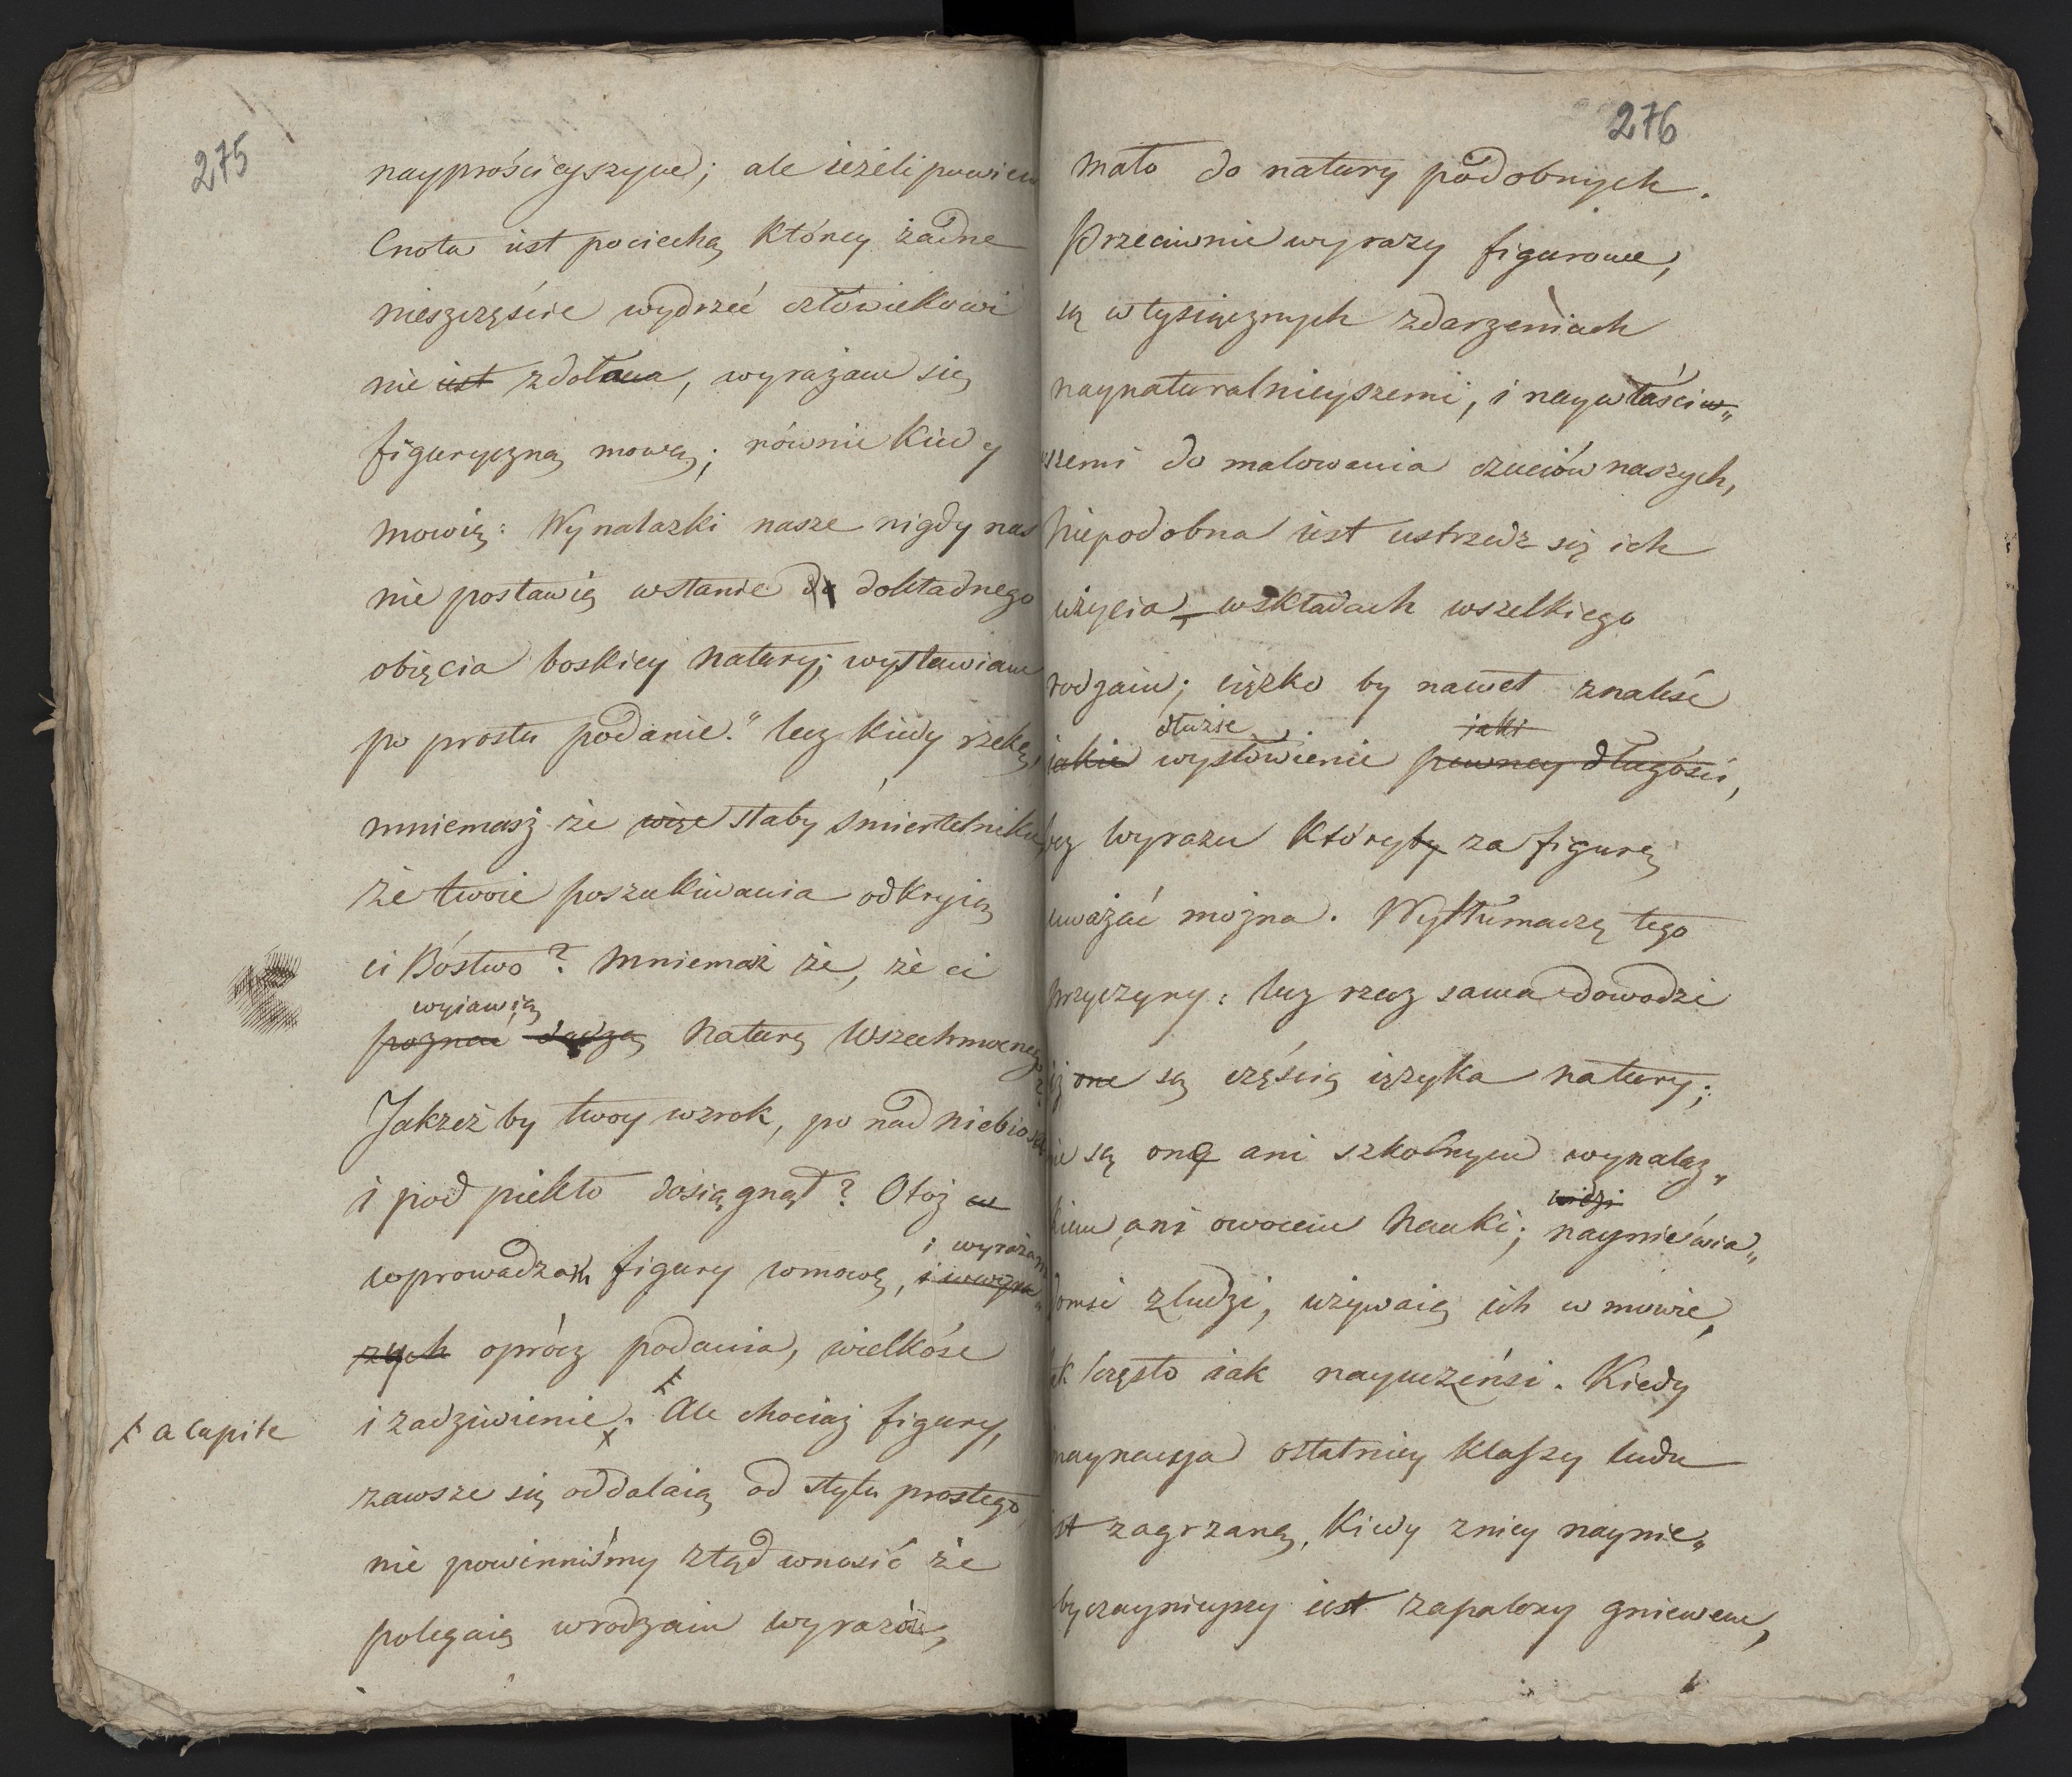 275
nayprościeyszym; ale ieżeli powiem
Cnota iest pociechą którey żadne
nieszczęście wydrzeć człowiekowi
nie iest zdoła, wyrażam się
figuryczną mową; równie kiedy
mowię: Wynalazki nasze nigdy nas
nie postawią wstanie do dokładnego
obięcia boskiey natury; wystawiam
po prostu podanie." lecz kiedy rzekę,
mniemasz że więc słaby śmiertelniku,
że twoie poszukiwania odkryią
ci Bóstwo? mniemasz że, że ci
wyiawią
poznać dadzą naturę Wszechmocnego?
Jakżeż by twoy wzrok, po nad niebiosa
i pod piekło dosiągnął? Otoż w
i wyrażam
wprowadzam figury wmowę, i wwyra„
zych oprócz podania, wielkość
i zadziwienie. Ale chociaż figury,
a capite
zawsze się oddalaią od stylu prostego,
nie powinniśmy ztąd wnosić że
polegaią wrodzaiu wyrazów,
276
mało do natury podobnych.
Przeciwnie wyrazy figurowe,
są w tysiącznych zdarzeniach
naynaturalnieyszemi, i naywłaściw„
szemi do malowania czuciów naszych,
Niepodobna iest ustrzedz się ich
użycia, wskładach wszelkiego
rodzaiu; ciężko by nawet znaleść
dłuższe jaki
iakie wysłowienie pewney długości,
bez wyrazu któryby za figurę
uważać można. Wytłumaczę tego
przyczyny: lecz rzecz sama dowodzi
iż one są częścią ięzyka natury;
nie są one ani szkolnym wynalaz„
widzi
kiem, ani owocem Nauki; naynieświa„
domsi zludzi, używaią ich w mowie,
tak często iak nayuczeńsi. Kiedy
ostatniey klassy ludu
iest zagrzaną, kiedy zniey naynie„
iest zapalony gniewem,